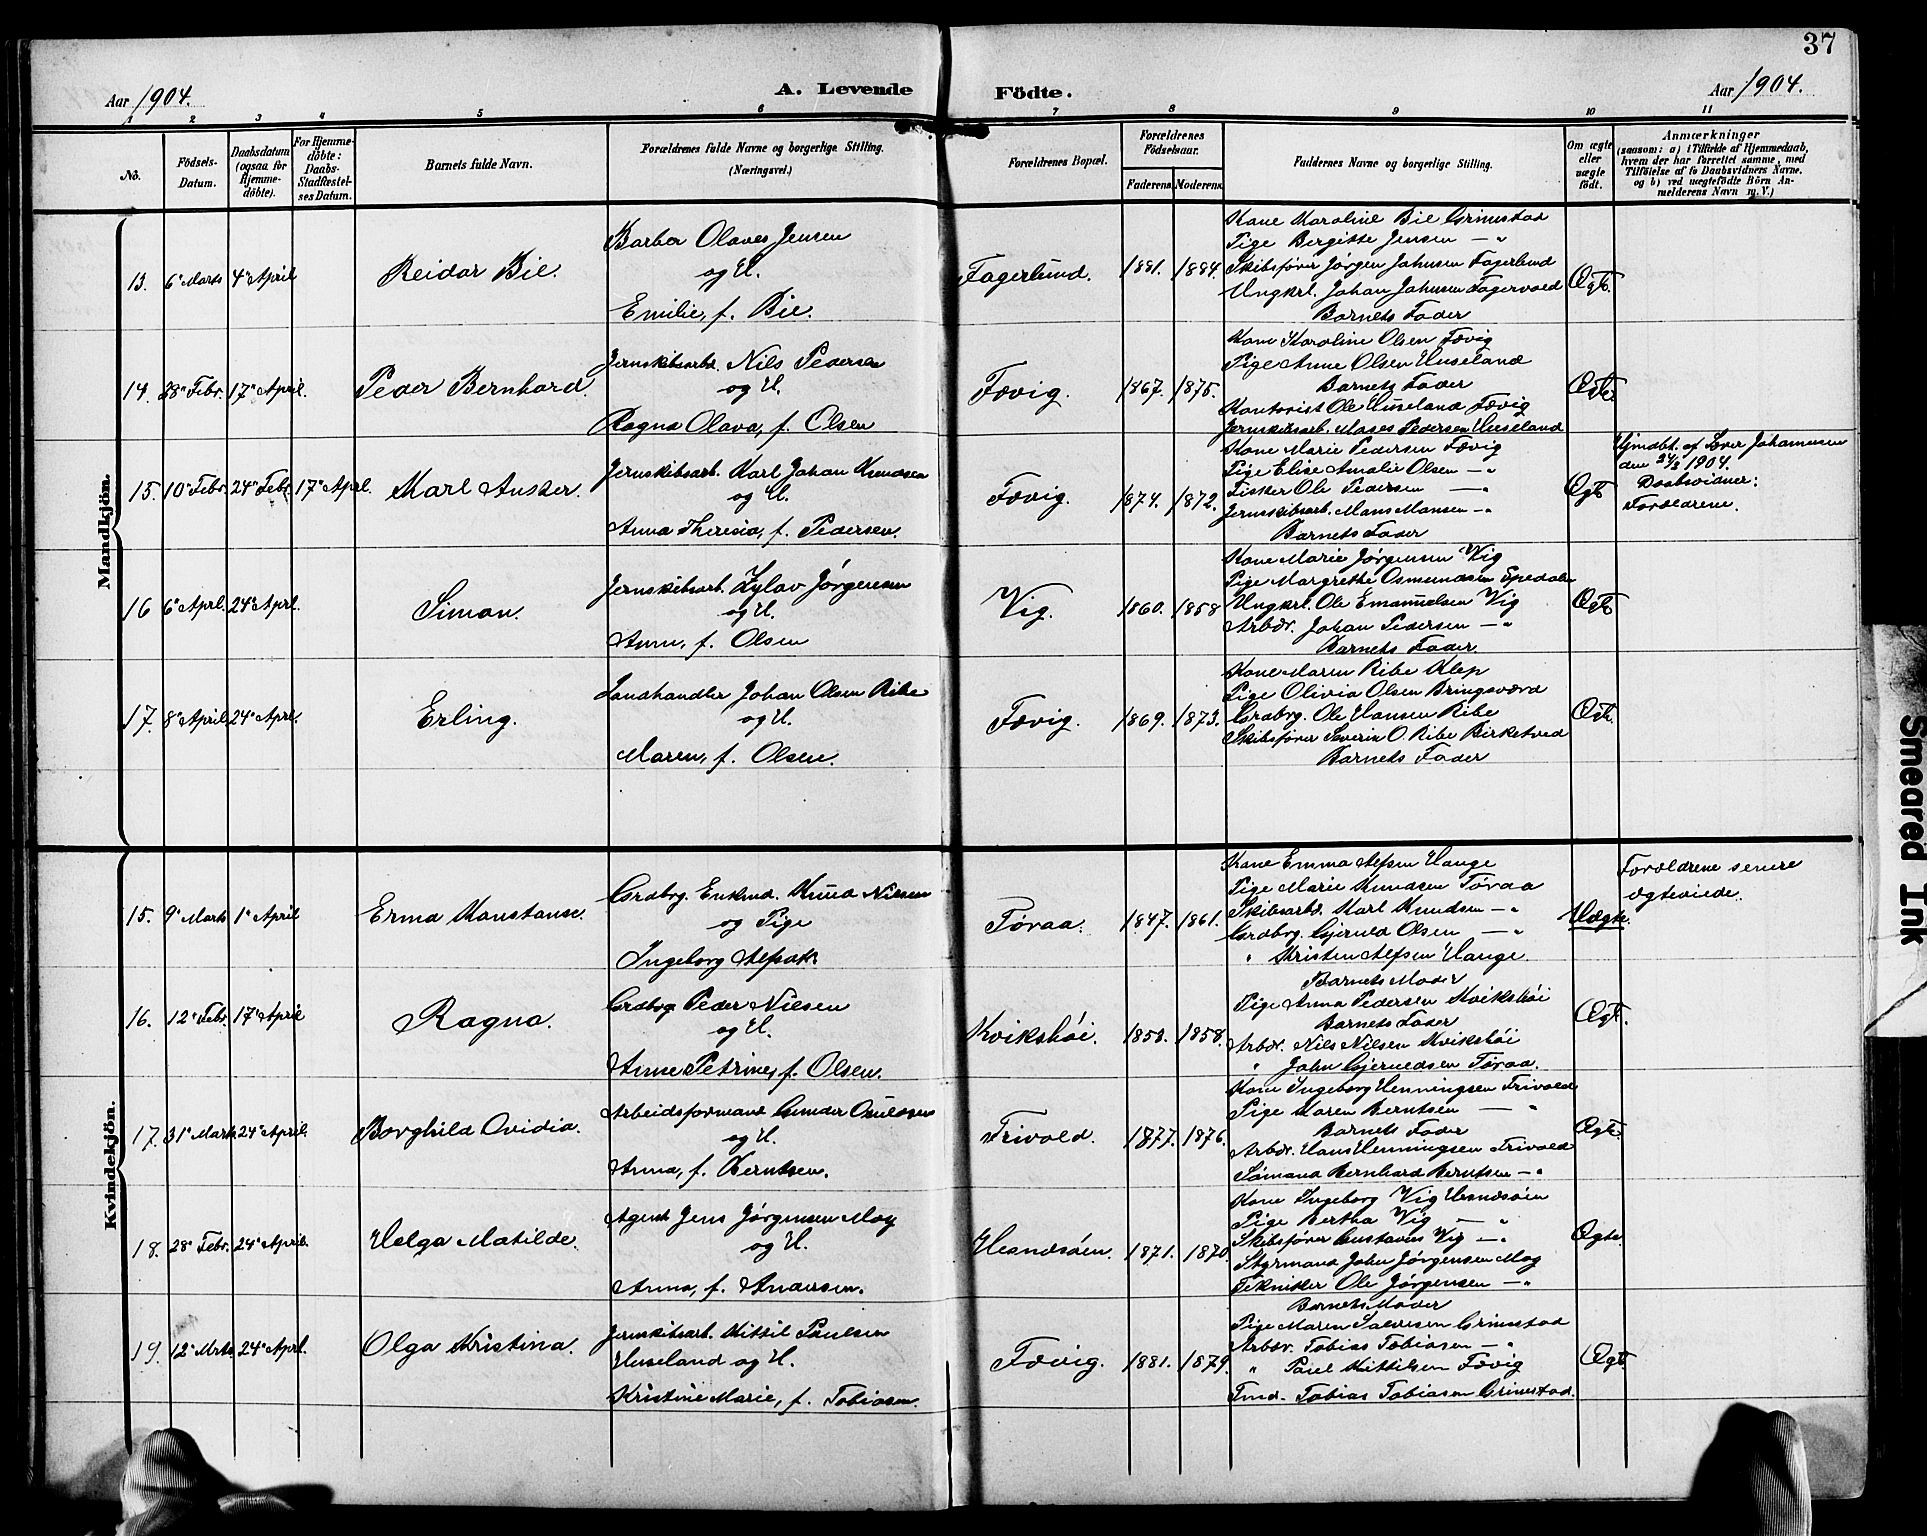 37
Aar 1904.
A. Levende Födte.
Aar 1904.
1 2 3 4 5 6 7 8 9 10 11
No.
Födsels-
Datum.
Daabsdatum
(ogsaa for
Hjemme-
döbte).
For Hjemme-
döbte:
Daabs-
Stadfæstel-
ses Datum.
Barnets fulde Navn.
Forældrenes fulde Navne og borgerlige Stilling.
(Næringsvei.)
Forældrenes Bopæl.
Forældrenes
Födselsaar.
Faderens. Moderens.
Faddernes Navne og borgerlige Stilling.
Om ægte
eller
uægte
født.
Anmærkninger
(saasom: a) i Tilfælde af Hjemmedaab,
hvem der har forrettet samme, med
Tilföielse af to Daabsvidners Navne.
og b) ved uægtefödte Börn An-
melderens Navn m. V.)
Mandkjön.
13. 6te Marts 4de April Reidar Bie.
Barber Olaves Jensen
og H.
Emilie, f. Bie.
Fagerlund. 1881. 1884.
Kone Karoline Bie Grimstad
Pige Bergitte Jensen — "
Skibsfører Jørgen Johnsen Fagerlund
Ungkrl. Johan Johnsen Fagervold
Barnets Fader
Ægte.
14. 28de Febr. 17de April. Peder Bernhard.
Jernskibsarbd. Nils Pedersen
og H.
Ragna Olava, f. Olsen
Fævig. 1867. 1875.
Kone Karoline Olsen Fævig
Pige Anne Olsen Huseland
Barnets Fader
Kontorist Ole Huseland Fævig
Jernskibsarb. Moses Pedersen Huseland
Ægte
15. 10de Febr. 24de Febr. 17de April. Karl Ansker.
Jernskibsarb. Karl Johan Knudsen
og H.
Anna Theresia, f. Pedersen.
Fævig. 1874. 1872.
Kone Marie Pedersen Fævig
Pige Elise Amalie Olsen — "
Fisker Ole Pedersen — "
Jernskibsarb. Hans Hansen — "
Barnets Fader
Ægte
Hjmdbt. af Lærer Johannesen
den 24/2 1904.
Daabsvidner:
Forældrene.
16 6te April. 24de April. Simon.
Jernskibsarb. Zylov Jørgensen
og H.
Anne, f. Olsen
Vig. 1860. 1858
Kone Marie Jørgensen Vig
Pige Margrethe Osmundsen Spedalen
Ungkrl. Ole Emanuelsen Vig
Arbdr. Johan Pedersen — "
Barnets Fader
Ægte
17. 8de April. 24de April. Erling.
Landhandler Johan Olsen Ribe
og H.
Maren, f. Olsen.
Fævig. 1869. 1873.
Kone Maren Ribe Klep
Pige Olivia Olsen Bringsværd
Grdbrg. Ole Hansen Ribe
Skibsfører Severin O. Ribe Birketved
Barnets Fader
Ægte.
Kvindekjön.
15. 9de Marts 1ste April Erma Konstanse.
Grdbrg. Enkmd. Knud Nilsen
og Pige
Ingeborg
Tøraa. 1847. 1861.
Kone Emma Hauge
Pige Marie Knudsen Tøraa
Skibsarbd. Karl Knudsen — "
Grdbrg. Gjerved Olsen — "
" Kristen Hauge.
Barnets Moder
Uægte.
Forældrene senere
ægteviede.
16. 12te Febr. 17de April Ragna.
Grdbrg Peder Nilsen
og H.
Anne Petrine, f. Olsen.
Kvikshøi. 1850. 1858.
Pige Anna Pedersen Kvikshøi
Barnets Fader
Arbdr. Nils Nilsen Kvikshøi
" John Gjervedsen Tøraa.
Ægt.
17. 31te Marts. 24de April. Borghild Ovidia.
Arbeidsformand Gunder
og H.
Anna, f. Berntsen.
Frivold. 1877. 1876.
Kone Ingeborg Henningsen Frivold
Pige Karen Berntsen — "
Barnets Fader
Arbdr. Hans Henningsen Frivold
Sømand Bernhard Berntsen — "
Ægte
18. 28de Febr. 24de April. Helga Matilde.
Agent Jens Jørgensen Moy
og H.
Anna, f. Andersen.
Hesnæsøen. 1871. 1870
Kone Ingeborg Vig Hesnæsøen
Pige Bertha Vig — "
Skibsfører Gustavus Vig — "
Styrmand John Jørgensen Moy
Tekniker Ole Jørgensen — "
Barnets Moder
Ægte.
19. 12te Mrts. 24de April. Olga Kristina.
Jernskibsarb. Kittil Paulsen
Huseland og H.
Kristine Marie, f. Tobiasen.
Fævig. 1881. 1879.
Pige Maren Salvesen Grimstad
Arbdr. Tobias Tobiasen — "
" Paul Kittilsen Fævig
Tmd. Tobias Tobiasen Grimstad.
Ægt
Smeared Ink